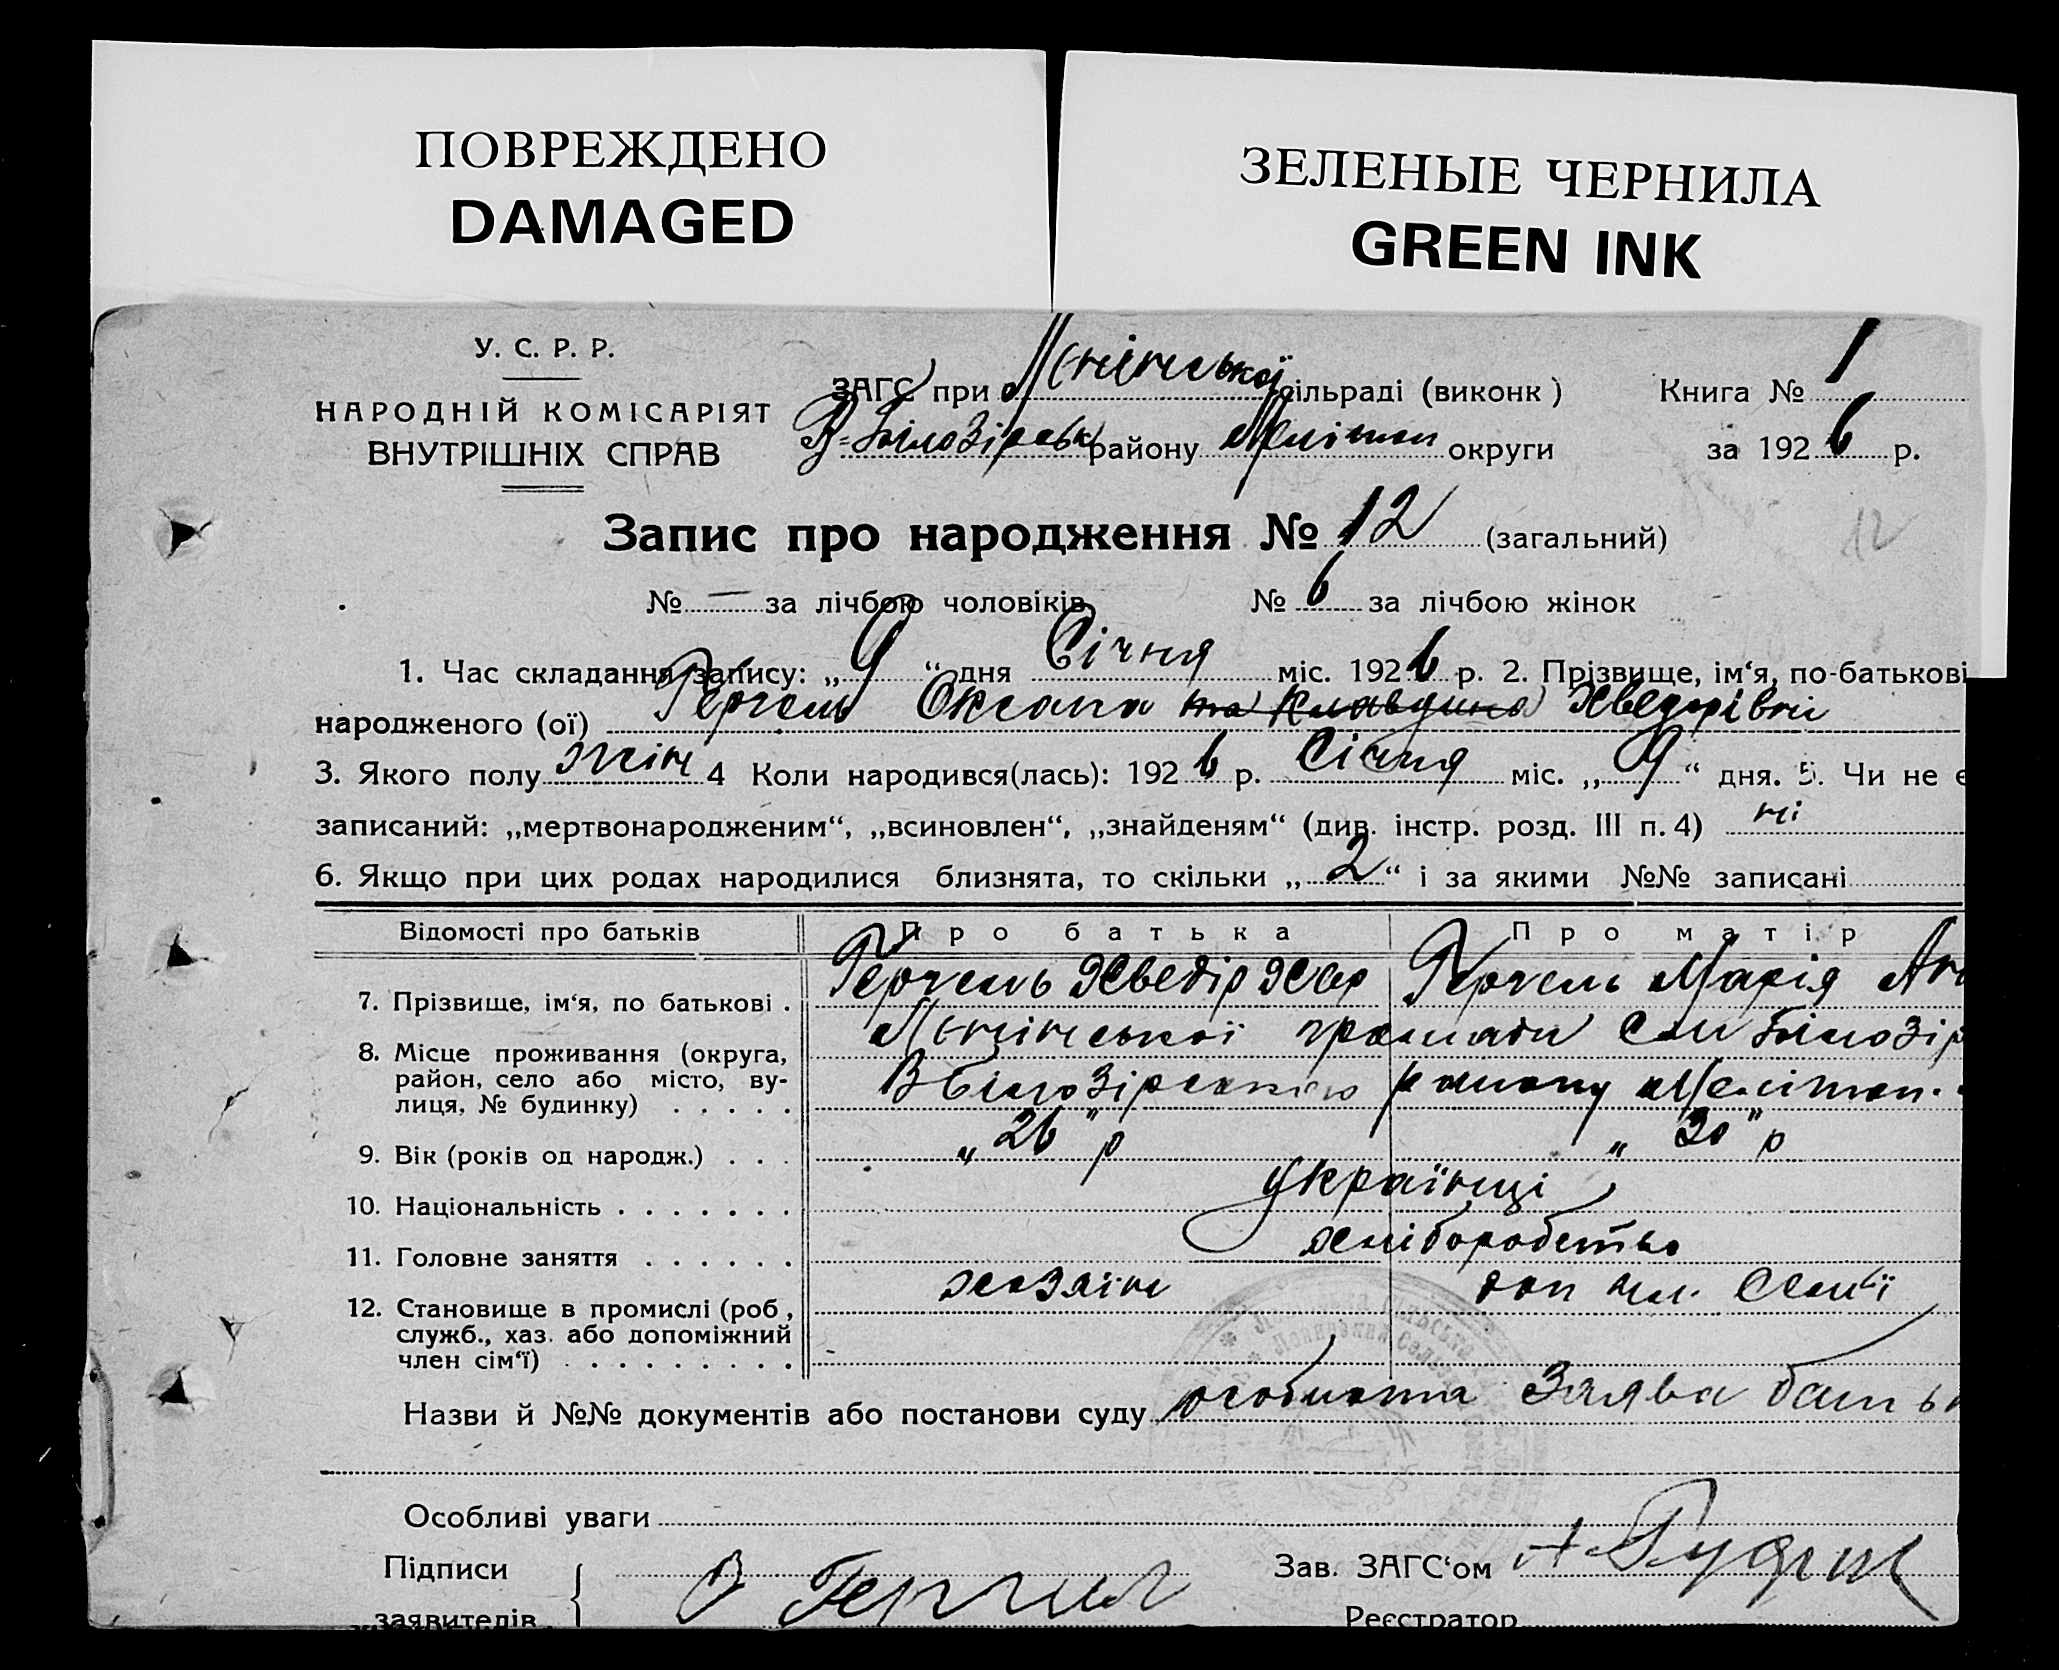 ПОВРЕЖДЕНО
DAMAGED
ЗЕЛЕНЫЕ ЧЕРНИЛА
GREEN INK
У. С. Р. Р.
НАРОДНІЙ КОМІСАРІЯТ
ВНУТРІШНІХ СПРАВ
ЗАГС при Ленінської сільраді (виконк) Книга № 1
В-Білозірськ району Мелітоп округи за 1926 р.
Запис про народження № 12 (загальний)
12
№ — за лічбою чоловіків № 6 за лічбою жінок
1. Час складання запису: „9“ дня Січня міс. 1926 р. 2. Прізвище, ім‘я, по-батькові
народженого (ої) Герчель Оксана та Клавдина Хведорівни
3. Якого полу жін 4 Коли народився(лась): 1926 р. Січня міс. „9“ дня. 5. Чи не є
записаний: „мертвонародженим“, „всиновлен“, „знайденям“ (див. інстр. розд. III п. 4) ні
6. Якщо при цих родах народилися близнята, то скільки „2“ і за якими №№ записані
Відомості про батьків Про батька Про матір
7. Прізвище, ім‘я, по батькові . Герчель Хведір Хар Герчель Марія Ан
8. Місце проживання (округа, Ленінської громади Єли Білозір
район, село або місто, ву- ВБілозірського району Мелітоп.
лиця, № будинку) . . . . .
9. Вік (років од народж.) . . . „26" р „30" р
10. Національність . . . . . . . українці
11. Головне заняття . . . . . . хліборобство
12. Становище в промислі (роб, хозяїн доп чл. Семьї
служб., хаз. або допоміжний
член сім‘ї) . . . . . . . . .
Назви й №№ документів або постанови суду особиста Заява батьк
Особливі уваги
Підписи
заявителів
Зав. ЗАГС‘ом
Реєстратор